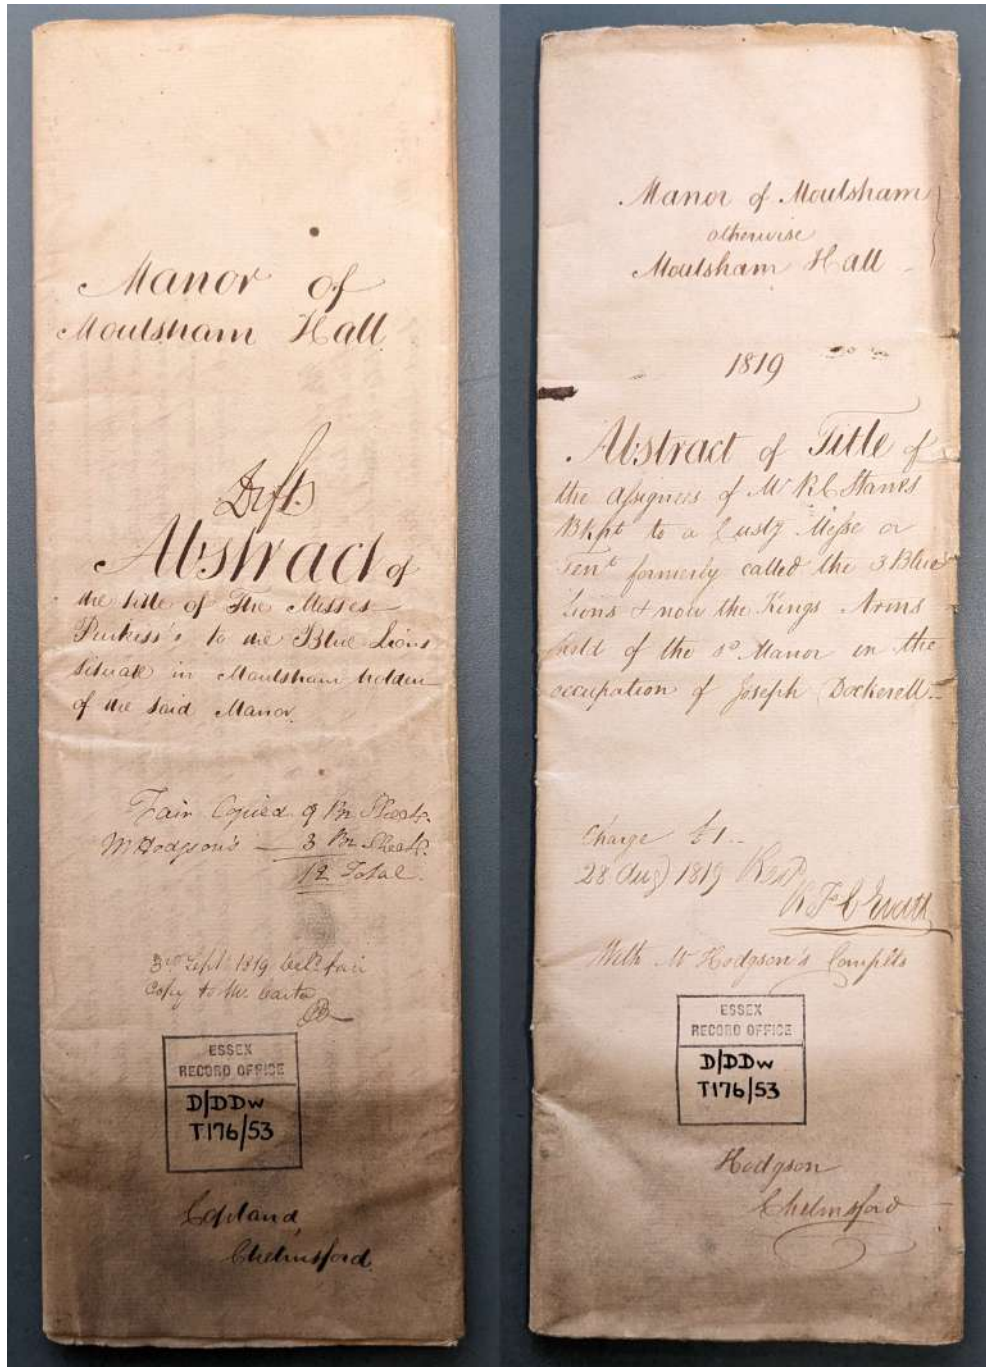 Manor of
Moulsham Hall
Dft
Abstract of
the title of The Messrs
Purkess's to the Blue Lions
situate in Moulsham holden
of the said Manor.
Fair Copied 9 Br Sheets.
Mr Hodgson's — 3 Br Sheets.
12 Total.
3rd Septr 1819 deld fair
Copy to Mr. Carter
ESSEX
RECORD OFFICE
D/DDw
T176/53
Copland,
Chelmsford.
Manor of Moulsham
otherwise
Moulsham Hall
1819
Abstract of Title of
the Assignees of Mr R C Stanes
Bkpt to a Custy Messe or
Tent formerly called the 3 Blue
Lions & now the Kings Arms
held of the sd Manor in the
occupation of Joseph Dockerell
Charge £1..
28 Aug 1819
With Mr Hodgson's Complts
ESSEX
RECORD OFFICE
D/DDw
T176/53
Hodgson
Chelmsford